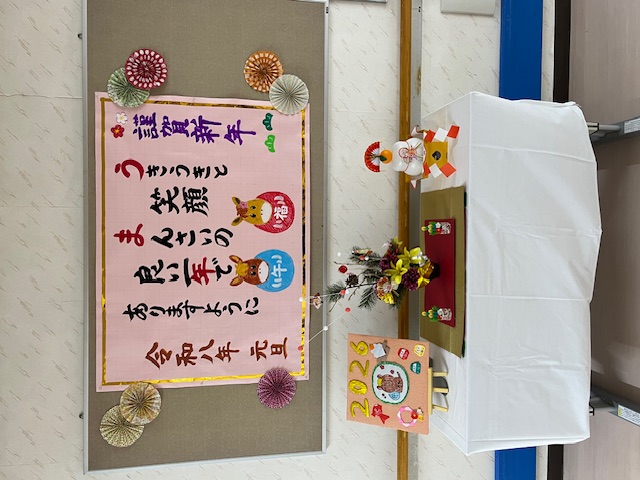 謹賀新年
うきうきと
笑顔
まんさいの
良い一年で
ありますように
令和八年 元旦
福
午
2026